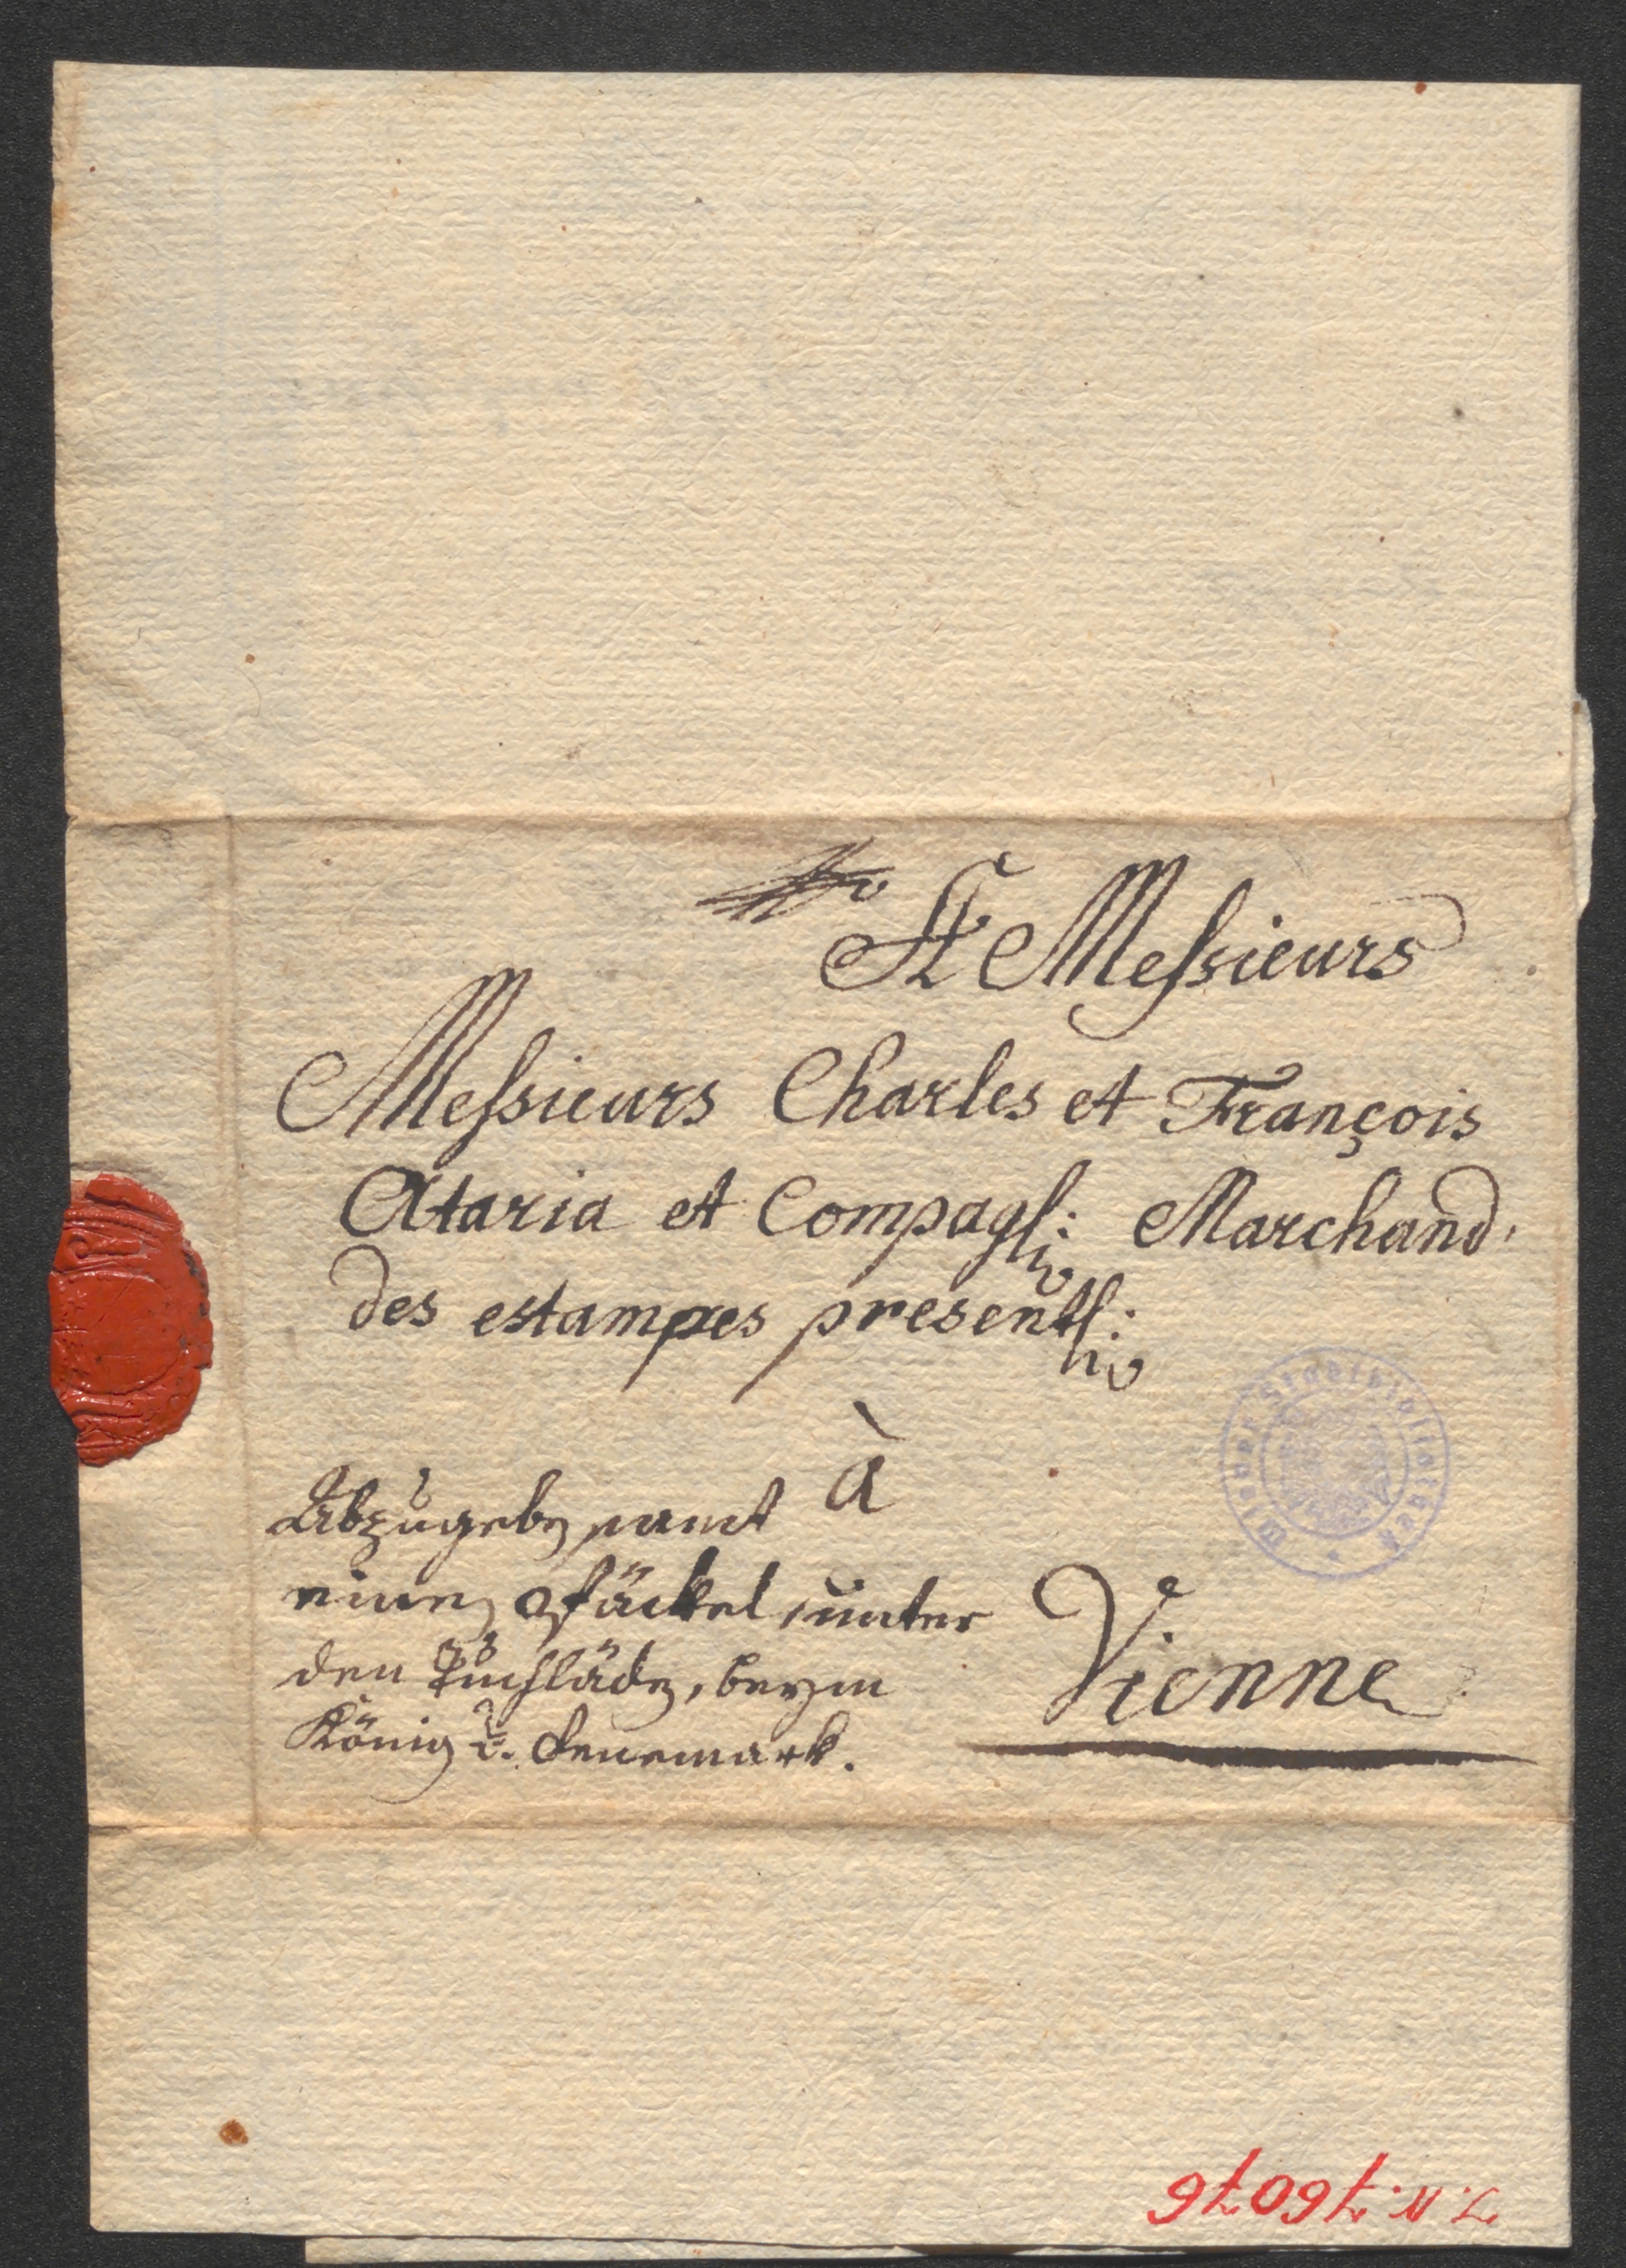 A Messieurs
Messieurs Charles et François
Ataria et Compagl: Marchand
des estampes presentl:
à
Vienne
Abzugeben samt
einem Päckel, unter
den Tuchläden, beym
König v. Denemark.
Wiener Stadtbibliothek
J. N. 76076